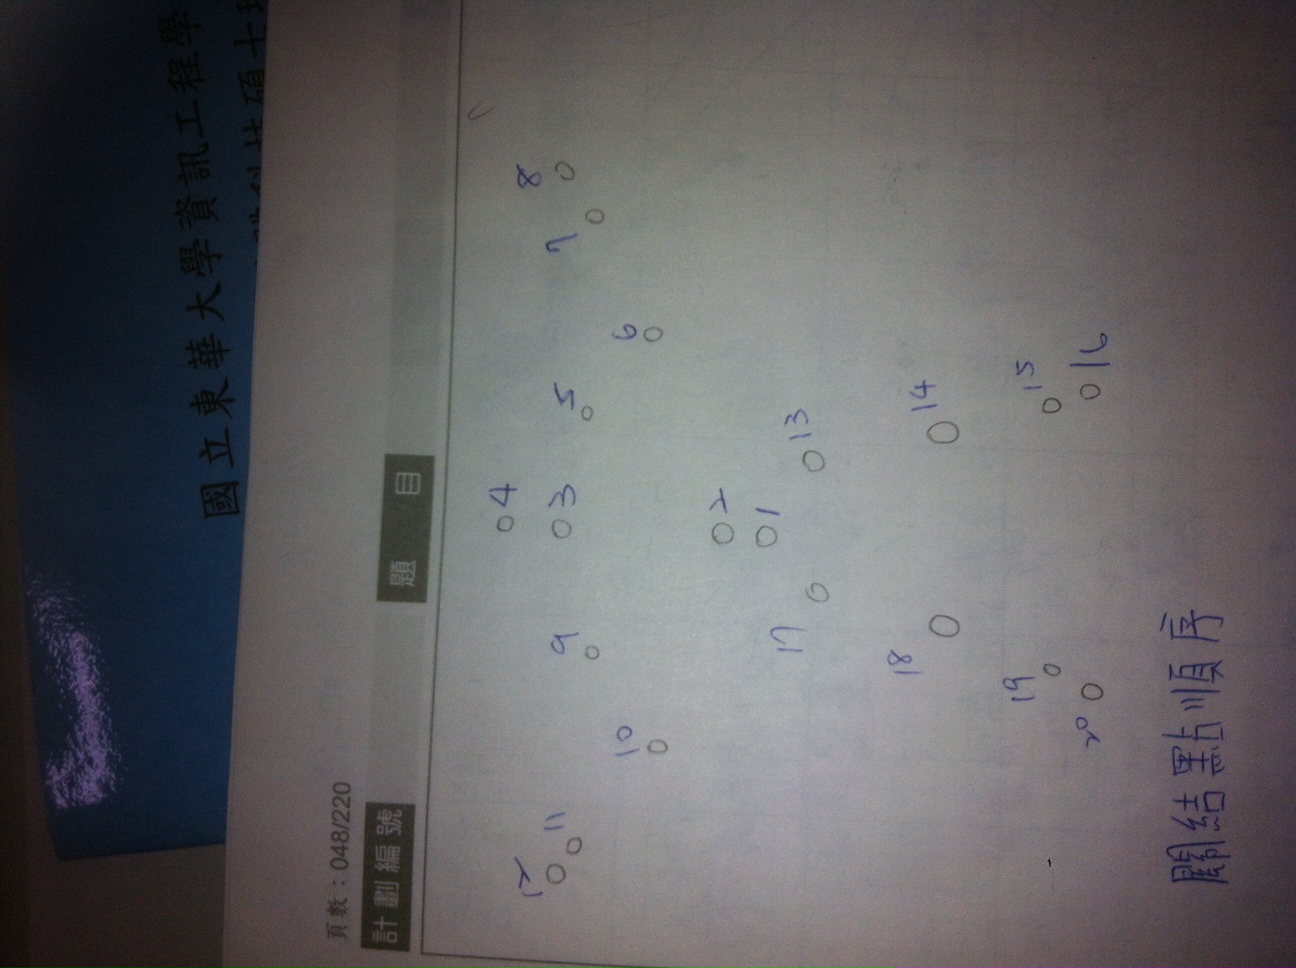 國立東華大學資訊工程學
科技碩士班
頁數：048/220
計劃編號 題 目
4
12 11 9 3 5 7 8
10 6
2
1
17 13
18 14
19 15
20 16
関結點順序